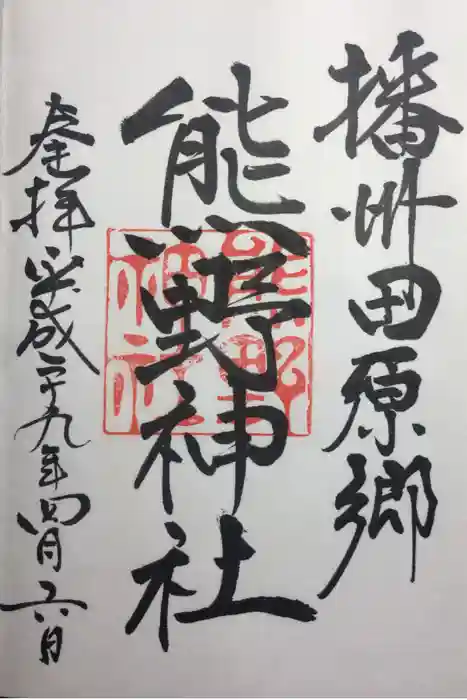 播州田原郷
熊野神社
熊野
神社
奉拝 平成二十九年四月六日